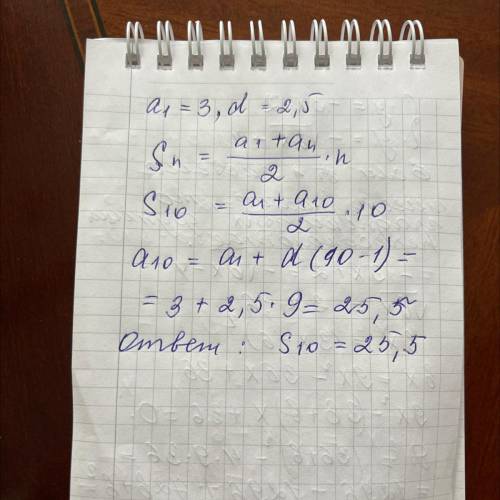 a₁ = 3, d = 2,5
Sₙ = (a₁ + aₙ)/2 · n
S₁₀ = (a₁ + a₁₀)/2 · 10
a₁₀ = a₁ + d (10 - 1) =
= 3 + 2,5 · 9 = 25,5
Ответ: S₁₀ = 25,5